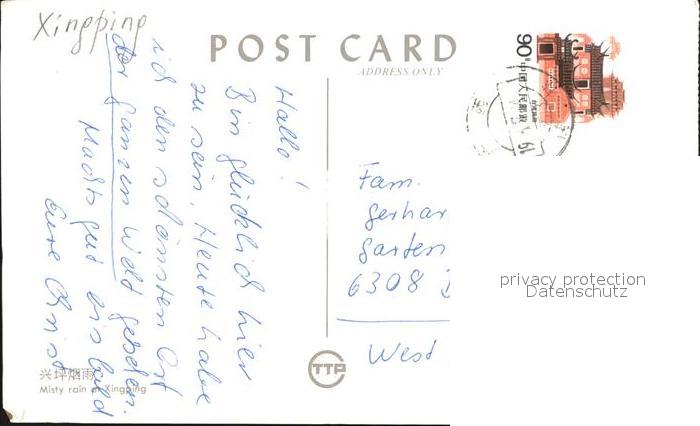 Xingping
POST CARD
ADDRESS ONLY
90分
中国人民邮政
Hallo!
Bin glücklich hier
zu sein. Heute habe
ich den schönsten Ort
der ganzen Welt gesehen.
Machts gut bis bald
Eure
Fam.
Gerhar
Garten
6308
West
privacy protection
Datenschutz
TTP
兴坪烟雨
Misty rain at Xingping